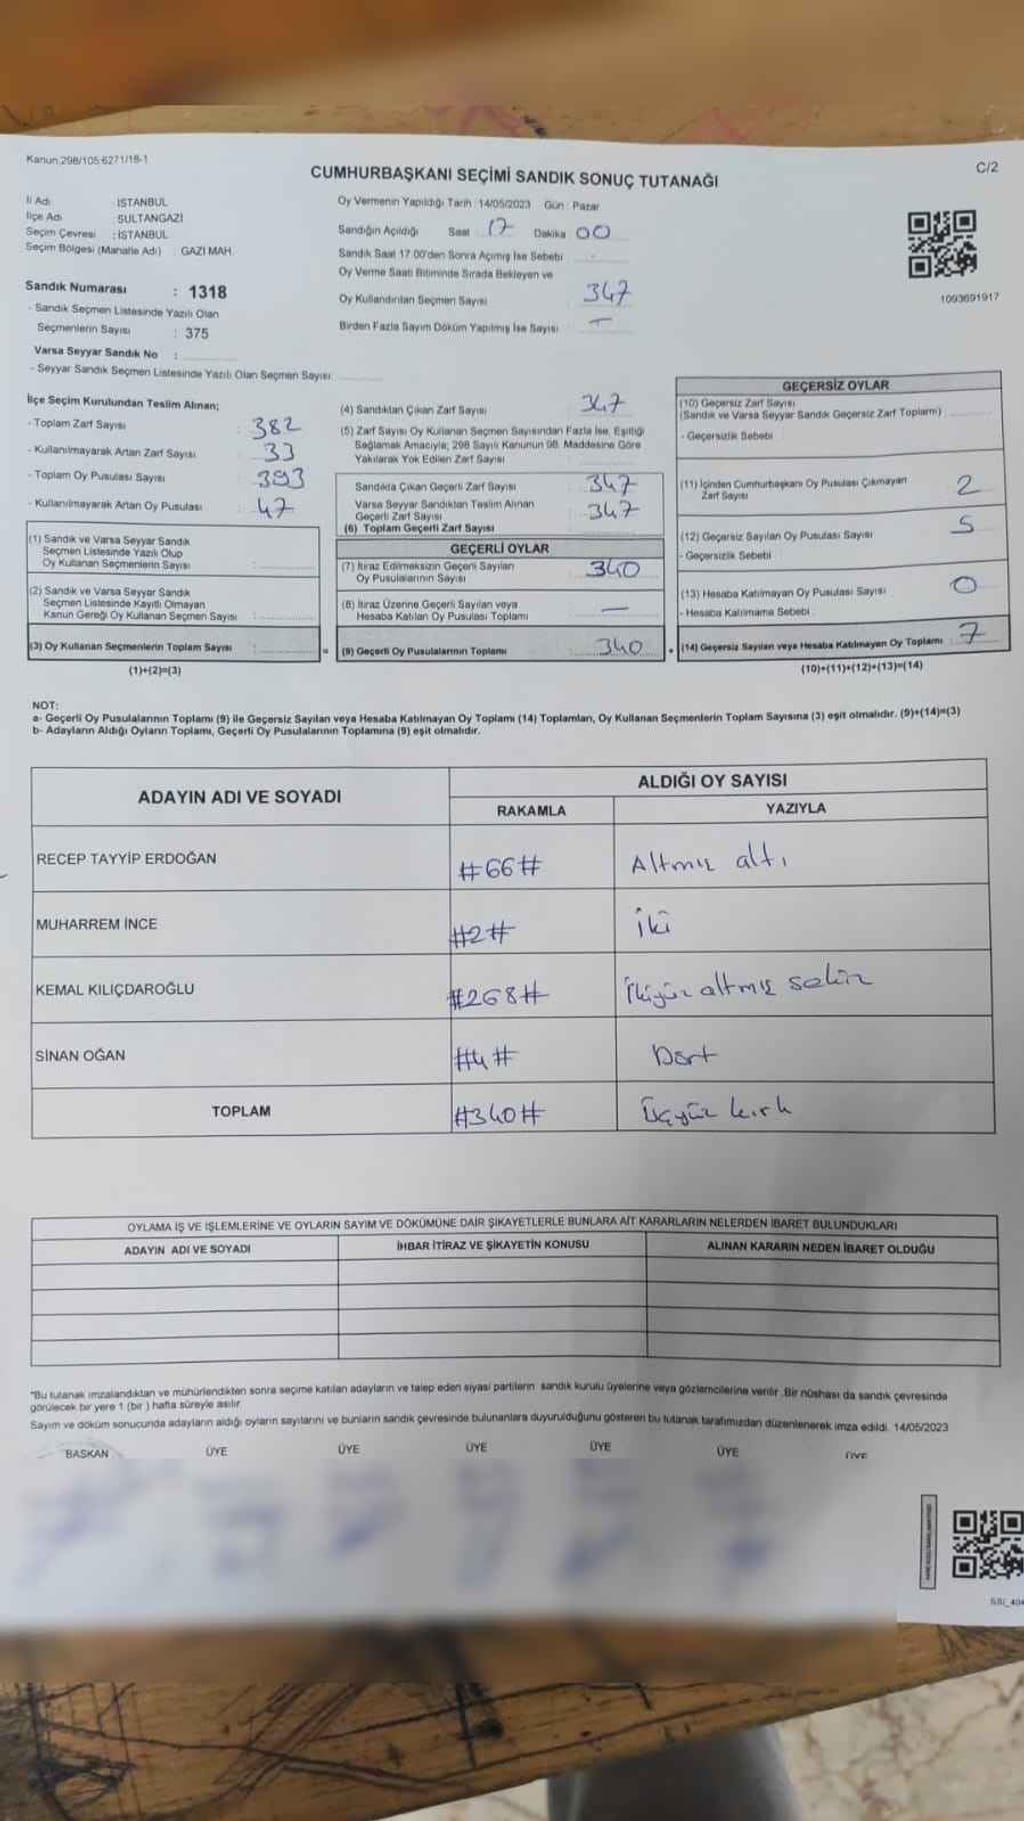 Kanun:298/105-6271/18-1
C/2
CUMHURBAŞKANI SEÇİMİ SANDIK SONUÇ TUTANAĞI
İl Adı : İSTANBUL
İlçe Adı : SULTANGAZİ
Seçim Çevresi : İSTANBUL
Seçim Bölgesi (Mahalle Adı) : GAZİ MAH.
Sandık Numarası : 1318
- Sandık Seçmen Listesinde Yazılı Olan
Seçmenlerin Sayısı : 375
Varsa Seyyar Sandık No :
- Seyyar Sandık Seçmen Listesinde Yazılı Olan Seçmen Sayısı
Oy Vermenin Yapıldığı Tarih : 14/05/2023 Gün : Pazar
Sandığın Açıldığı Saat 17 Dakika 00
Sandık Saat 17.00'den Sonra Açılmış İse Sebebi
Oy Verme Saati Bitiminde Sırada Bekleyen ve
Oy Kullandırılan Seçmen Sayısı 347
Birden Fazla Sayım Döküm Yapılmış İse Sayısı -
1093691917
İlçe Seçim Kurulundan Teslim Alınan;
- Toplam Zarf Sayısı : 382
- Kullanılmayarak Artan Zarf Sayısı : 33
- Toplam Oy Pusulası Sayısı : 393
- Kullanılmayarak Artan Oy Pusulası : 47
(1) Sandık ve Varsa Seyyar Sandık
Seçmen Listesinde Yazılı Olup
Oy Kullanan Seçmenlerin Sayısı :
(2) Sandık ve Varsa Seyyar Sandık
Seçmen Listesinde Kayıtlı Olmayan
Kanun Gereği Oy Kullanan Seçmen Sayısı :
(3) Oy Kullanan Seçmenlerin Toplam Sayısı :
(1)+(2)=(3)
(4) Sandıktan Çıkan Zarf Sayısı 347
(5) Zarf Sayısı Oy Kullanan Seçmen Sayısından Fazla İse, Eşitliği
Sağlamak Amacıyla; 298 Sayılı Kanunun 98. Maddesine Göre
Yakılarak Yok Edilen Zarf Sayısı
Sandıkta Çıkan Geçerli Zarf Sayısı 347
Varsa Seyyar Sandıktan Teslim Alınan
Geçerli Zarf Sayısı 347
(6) Toplam Geçerli Zarf Sayısı
GEÇERLİ OYLAR
(7) İtiraz Edilmeksizin Geçerli Sayılan
Oy Pusulalarının Sayısı 340
(8) İtiraz Üzerine Geçerli Sayılan veya
Hesaba Katılan Oy Pusulası Toplamı —
(9) Geçerli Oy Pusulalarının Toplamı : 340
GEÇERSİZ OYLAR
(10) Geçersiz Zarf Sayısı
(Sandık ve Varsa Seyyar Sandık Geçersiz Zarf Toplamı)
- Geçersizlik Sebebi
(11) İçinden Cumhurbaşkanı Oy Pusulası Çıkmayan
Zarf Sayısı 2
(12) Geçersiz Sayılan Oy Pusulası Sayısı 5
- Geçersizlik Sebebi
(13) Hesaba Katılmayan Oy Pusulası Sayısı 0
- Hesaba Katılmama Sebebi
(14) Geçersiz Sayılan veya Hesaba Katılmayan Oy Toplamı : 7
(10)+(11)+(12)+(13)=(14)
NOT:
a- Geçerli Oy Pusulalarının Toplamı (9) ile Geçersiz Sayılan veya Hesaba Katılmayan Oy Toplamı (14) Toplamları, Oy Kullanan Seçmenlerin Toplam Sayısına (3) eşit olmalıdır. (9)+(14)=(3)
b- Adayların Aldığı Oyların Toplamı, Geçerli Oy Pusulalarının Toplamına (9) eşit olmalıdır.
ADAYIN ADI VE SOYADI
ALDIĞI OY SAYISI
RAKAMLA YAZIYLA
RECEP TAYYİP ERDOĞAN #66# Altmış altı
MUHARREM İNCE #2# iki
KEMAL KILIÇDAROĞLU #268# İkiyüz altmış sekiz
SİNAN OĞAN #4# Dört
TOPLAM #340# Üçyüz kırk
OYLAMA İŞ VE İŞLEMLERİNE VE OYLARIN SAYIM VE DÖKÜMÜNE DAİR ŞİKAYETLERLE BUNLARA AİT KARARLARIN NELERDEN İBARET BULUNDUKLARI
ADAYIN ADI VE SOYADI İHBAR İTİRAZ VE ŞİKAYETİN KONUSU ALINAN KARARIN NEDEN İBARET OLDUĞU
"Bu tutanak imzalandıktan ve mühürlendikten sonra seçime katılan adayların ve talep eden siyasi partilerin sandık kurulu üyelerine veya gözlemcilerine verilir. Bir nüshası da sandık çevresinde
görülecek bir yere 1 (bir) hafta süreyle asılır.
Sayım ve döküm sonucunda adayların aldığı oyların sayılarını ve bunların sandık çevresinde bulunanlara duyurulduğunu gösteren bu tutanak tarafımızdan düzenlenerek imza edildi. 14/05/2023
BAŞKAN ÜYE ÜYE ÜYE ÜYE ÜYE ÜYE